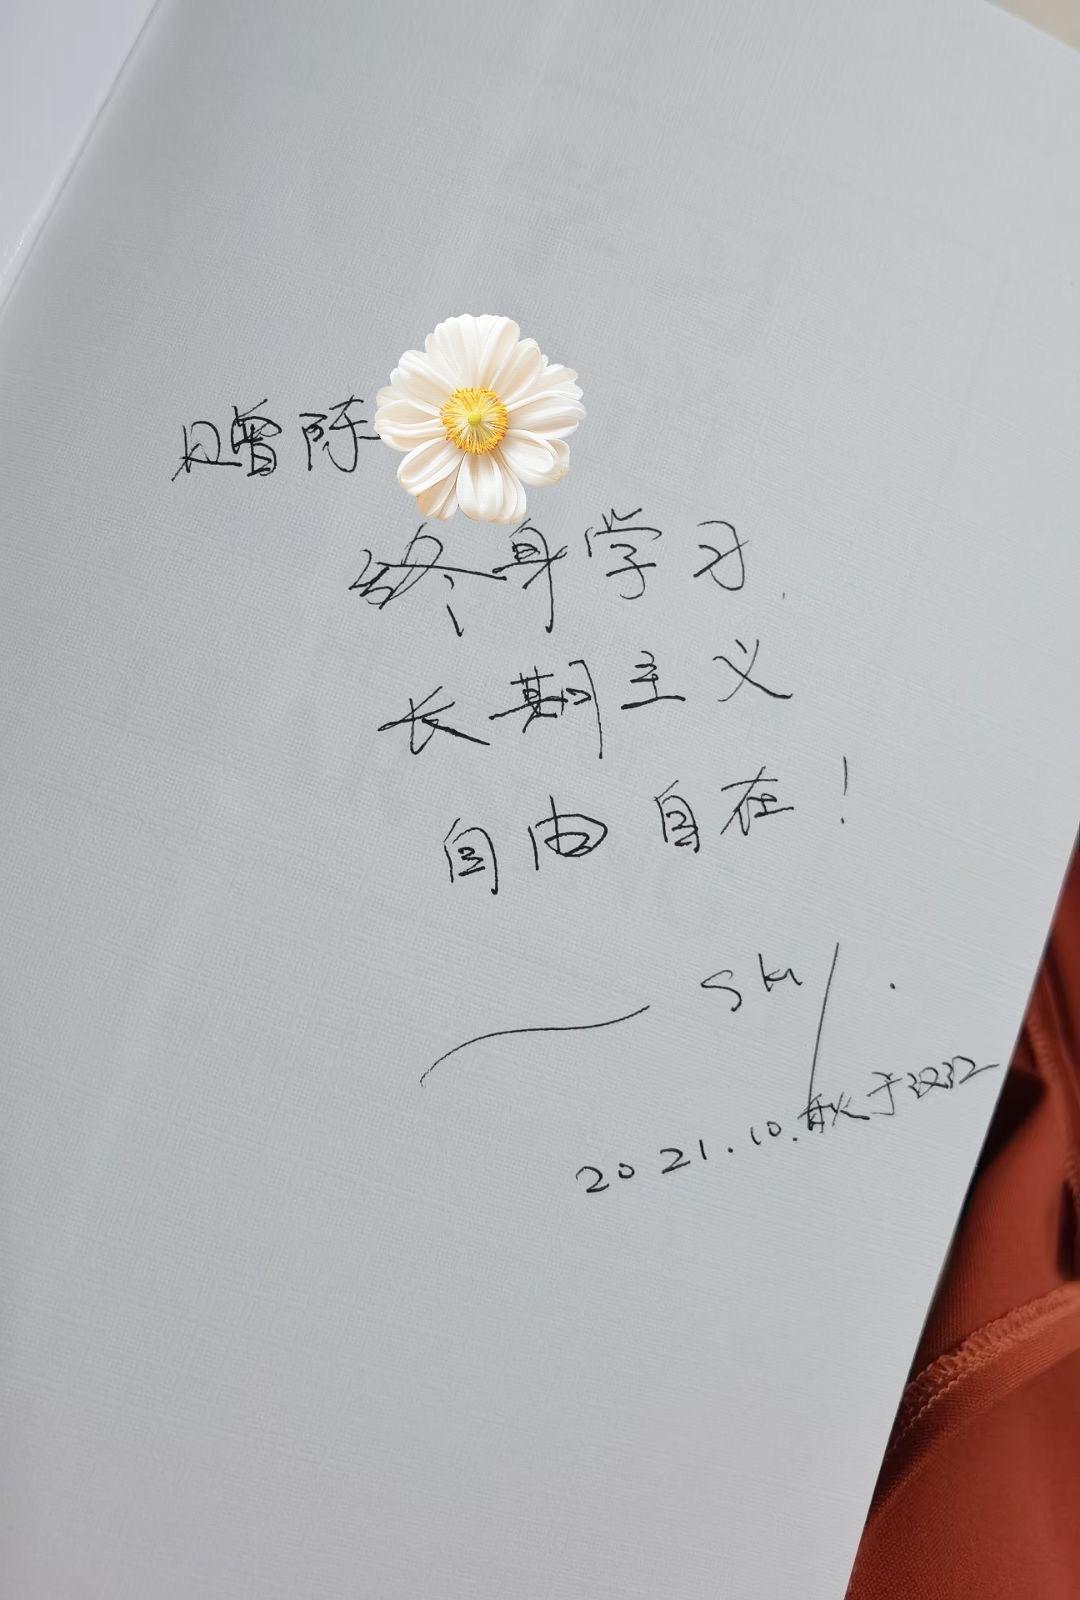 赠陈
终身学习
长期主义
自由自在！
Sky.
2021.10.秋于汉江